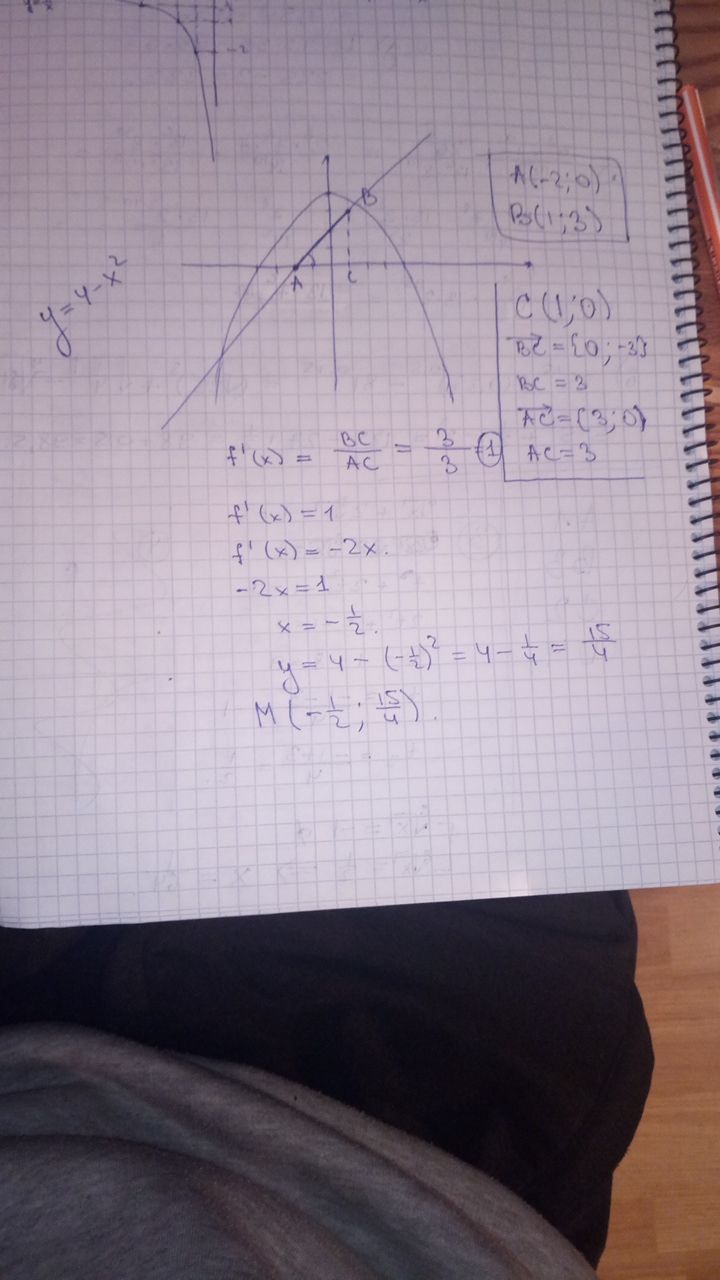 -2
A(-2;0)
B(1;3)
y=4-x²
B
A
C
C(1;0)
BC={0;-3}
BC=3
AC={3;0}
AC=3
f'(x) = BC/AC = 3/3 = 1
f'(x)=1
f'(x)=-2x.
-2x=1
x=-1/2.
y=4-(-1/2)²=4-1/4=15/4
M(-1/2;15/4).